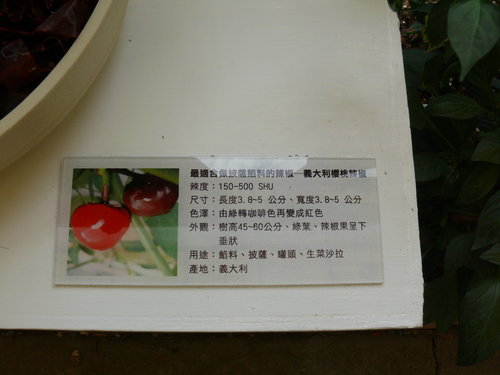 最適合做披薩餡料的辣椒—義大利櫻桃辣椒
辣度：150~500 SHU
尺寸：長度3.8~5 公分、寬度3.8~5 公分
色澤：由綠轉咖啡色再變成紅色
外觀：樹高45~60公分、綠葉、辣椒果呈下
垂狀
用途：餡料、披薩、罐頭、生菜沙拉
產地：義大利